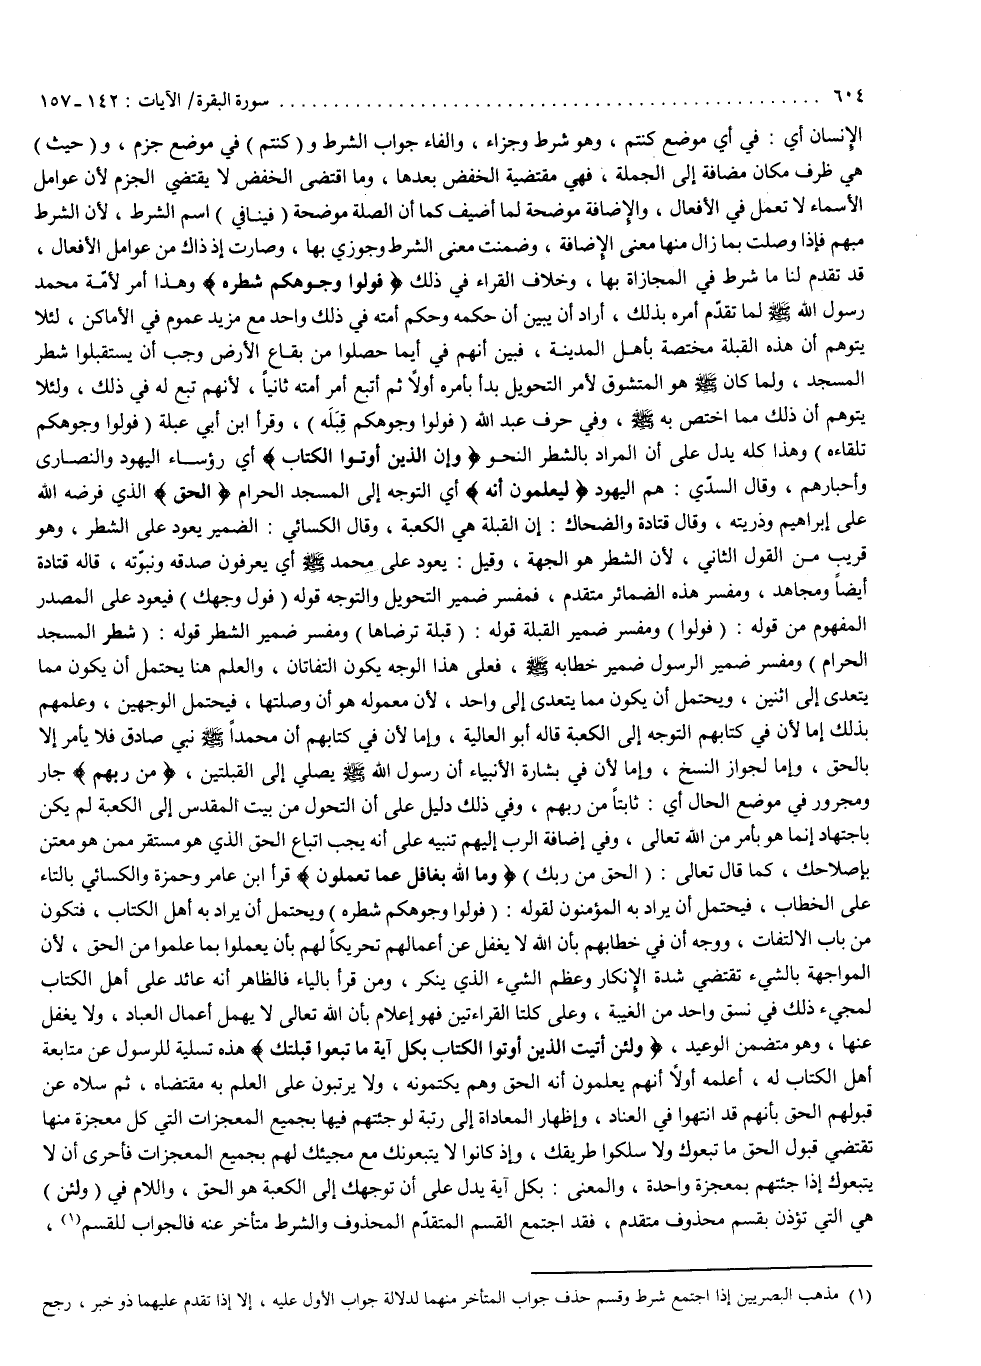 ٦٠٤ . . . . . . . . . . . . . . . . . . . . . . . . . . . . . . . . . . . . . . . . . . . . . سورة البقرة/ الآيات : ١٤٢ ـ ١٥٧
الإنسان أي : في أي موضع كنتم ، وهو شرط وجزاء ، والفاء جواب الشرط و ( كنتم ) في موضع جزم ، و ( حيث )
هي ظرف مكان مضافة إلى الجملة ، فهي مقتضية الخفض بعدها ، وما اقتضى الخفض لا يقتضي الجزم لأن عوامل
الأسماء لا تعمل في الأفعال ، والإضافة موضحة لما أضيف كما أن الصلة موضحة ( فينافي ) اسم الشرط ، لأن الشرط
مبهم فإذا وصلت بما زال منها معنى الإضافة ، وضمنت معنى الشرط وجوزي بها ، وصارت إذ ذاك من عوامل الأفعال ،
قد تقدم لنا ما شرط في المجازاة بها ، وخلاف القراء في ذلك ﴿ فولوا وجوهكم شطره ﴾ وهذا أمر لأمّة محمد
رسول الله ﷺ لما تقدّم أمره بذلك ، أراد أن يبين أن حكمه وحكم أمته في ذلك واحد مع مزيد عموم في الأماكن ، لئلا
يتوهم أن هذه القبلة مختصة بأهل المدينة ، فبين أنهم في أيما حصلوا من بقاع الأرض وجب أن يستقبلوا شطر
المسجد ، ولما كان ﷺ هو المتشوق لأمر التحويل بدأ بأمره أولاً ثم أتبع أمر أمته ثانياً ، لأنهم تبع له في ذلك ، ولئلا
يتوهم أن ذلك مما اختص به ﷺ ، وفي حرف عبد الله ( فولوا وجوهكم قِبَلَه ) ، وقرأ ابن أبي عبلة ( فولوا وجوهكم
تلقاءه ) وهذا كله يدل على أن المراد بالشطر النحو ﴿ وإن الذين أوتوا الكتاب ﴾ أي رؤساء اليهود والنصارى
وأحبارهم ، وقال السدّي : هم اليهود ﴿ ليعلمون أنه ﴾ أي التوجه إلى المسجد الحرام ﴿ الحق ﴾ الذي فرضه الله
على إبراهيم وذريته ، وقال قتادة والضحاك : إن القبلة هي الكعبة ، وقال الكسائي : الضمير يعود على الشطر ، وهو
قريب من القول الثاني ، لأن الشطر هو الجهة ، وقيل : يعود على محمد ﷺ أي يعرفون صدقه ونبوّته ، قاله قتادة
أيضاً ومجاهد ، ومفسر هذه الضمائر متقدم ، فمفسر ضمير التحويل والتوجه قوله ( فول وجهك ) فيعود على المصدر
المفهوم من قوله : ( فولوا ) ومفسر ضمير القبلة قوله : ( قبلة ترضاها ) ومفسر ضمير الشطر قوله : ( شطر المسجد
الحرام ) ومفسر ضمير الرسول ضمير خطابه ﷺ ، فعلى هذا الوجه يكون التفاتان ، والعلم هنا يحتمل أن يكون مما
يتعدى إلى اثنين ، ويحتمل أن يكون مما يتعدى إلى واحد ، لأن معموله هو أن وصلتها ، فيحتمل الوجهين ، وعلمهم
بذلك إما لأن في كتابهم التوجه إلى الكعبة قاله أبو العالية ، وإما لأن في كتابهم أن محمداً ﷺ نبي صادق فلا يأمر إلا
بالحق ، وإما لجواز النسخ ، وإما لأن في بشارة الأنبياء أن رسول الله ﷺ يصلي إلى القبلتين ، ﴿ من ربهم ﴾ جار
ومجرور في موضع الحال أي : ثابتاً من ربهم ، وفي ذلك دليل على أن التحول من بيت المقدس إلى الكعبة لم يكن
باجتهاد إنما هو بأمر من الله تعالى ، وفي إضافة الرب إليهم تنبيه على أنه يجب اتباع الحق الذي هو مستقر ممن هو معتن
بإصلاحك ، كما قال تعالى : ( الحق من ربك ) ﴿ وما الله بغافل عما تعملون ﴾ قرأ ابن عامر وحمزة والكسائي بالتاء
على الخطاب ، فيحتمل أن يراد به المؤمنون لقوله : ( فولوا وجوهكم شطره ) ويحتمل أن يراد به أهل الكتاب ، فتكون
من باب الالتفات ، ووجه أن في خطابهم بأن الله لا يغفل عن أعمالهم تحريكاً لهم بأن يعملوا بما علموا من الحق ، لأن
المواجهة بالشيء تقتضي شدة الإنكار وعظم الشيء الذي ينكر ، ومن قرأ بالياء فالظاهر أنه عائد على أهل الكتاب
لمجيء ذلك في نسق واحد من الغيبة ، وعلى كلتا القراءتين فهو إعلام بأن الله تعالى لا يهمل أعمال العباد ، ولا يغفل
عنها ، وهو متضمن الوعيد ، ﴿ ولئن أتيت الذين أوتوا الكتاب بكل آية ما تبعوا قبلتك ﴾ هذه تسلية للرسول عن متابعة
أهل الكتاب له ، أعلمه أولاً أنهم يعلمون أنه الحق وهم يكتمونه ، ولا يرتبون على العلم به مقتضاه ، ثم سلاه عن
قبولهم الحق بأنهم قد انتهوا في العناد ، وإظهار المعاداة إلى رتبة لو جئتهم فيها بجميع المعجزات التي كل معجزة منها
تقتضي قبول الحق ما تبعوك ولا سلكوا طريقك ، وإذ كانوا لا يتبعونك مع مجيئك لهم بجميع المعجزات فأحرى أن لا
يتبعوك إذا جئتهم بمعجزة واحدة ، والمعنى : بكل آية يدل على أن توجهك إلى الكعبة هو الحق ، واللام في ( ولئن )
هي التي تؤذن بقسم محذوف متقدم ، فقد اجتمع القسم المتقدّم المحذوف والشرط متأخر عنه فالجواب للقسم(١) ،
(١) مذهب البصريين إذا اجتمع شرط وقسم حذف جواب المتأخر منهما لدلالة جواب الأول عليه ، إلا إذا تقدم عليهما ذو خبر ، رجح